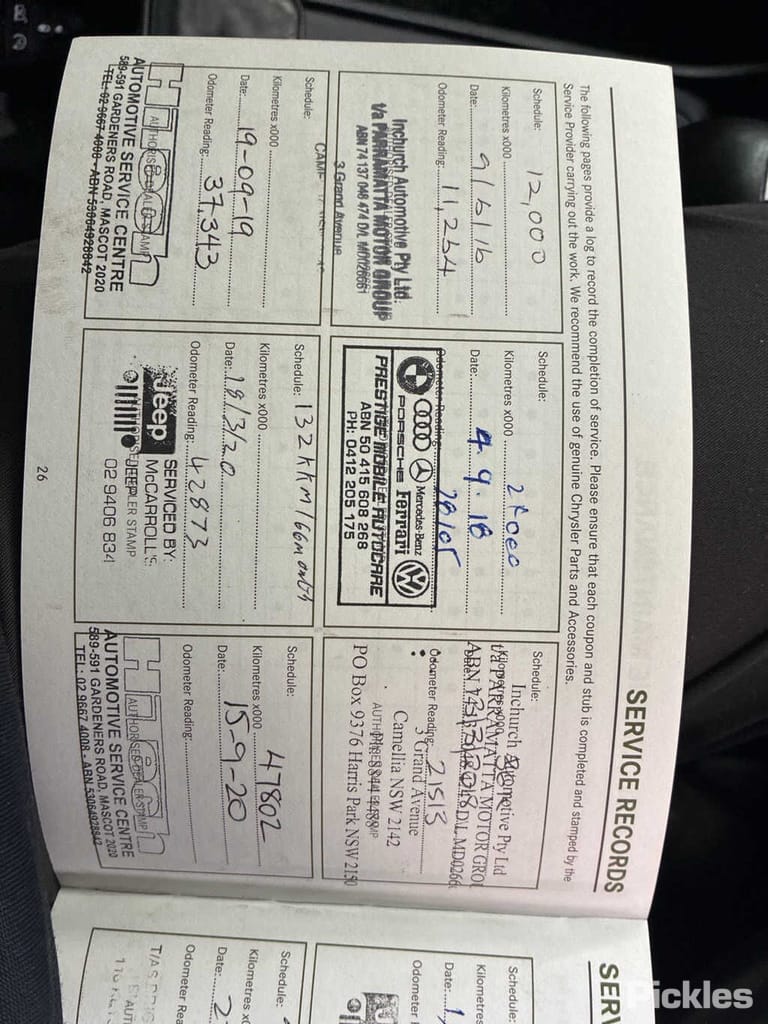 SERVICE RECORDS
The following pages provide a log to record the completion of service. Please ensure that each coupon and stub is completed and stamped by the
Service Provider carrying out the work. We recommend the use of genuine Chrysler Parts and Accessories.
Schedule: 12,000
Kilometres x000
Date: 9/6/16
Odometer Reading: 11,264
Inchurch Automotive Pty Ltd.
t/a PARRAMATTA MOTOR GROUP
ABN 74 137 048 474 D/L MD026661
3 Grand Avenue
Schedule:
Kilometres x000
Date: 4.9.18
Odometer Reading: 28105
Mercedes-Benz
PORSCHE Ferrari
PRESTIGE MOBILE AUTOCARE
ABN 50 415 608 268
PH: 0412 205 175
Schedule:
Inchurch Automotive Pty Ltd
Kilometres x000
t/a PARRAMATTA MOTOR GROU
Odometer Reading: 21513
3 Grand Avenue
Camellia NSW 2142
PO Box 9376 Harris Park NSW 2150
Schedule:
Kilometres x000
Date: 19-09-19
Odometer Reading: 37,343
AUTHORISED DEALER STAMP
AUTOMOTIVE SERVICE CENTRE
589-591 GARDENERS ROAD, MASCOT 2020
TEL: 02 9667 4008 - ABN 53064928842
Schedule: 132KKM/66months
Kilometres x000
Date: 18/3/20
Odometer Reading: 42873
Jeep
SERVICED BY:
McCARROLL'S
JEEP
DEALER STAMP
02 9406 834
Schedule:
Kilometres x000 47802
Date: 15-9-20
Odometer Reading:
AUTHORISED DEALER STAMP
AUTOMOTIVE SERVICE CENTRE
589-591 GARDENERS ROAD, MASCOT 2020
TEL: 02 9667 4008 - ABN 53064928842
26
SERV
Schedule:
Kilometres x000
Date:
Odometer
Schedule:
Kilometres x0
Date:
Odometer Rea
Pickles